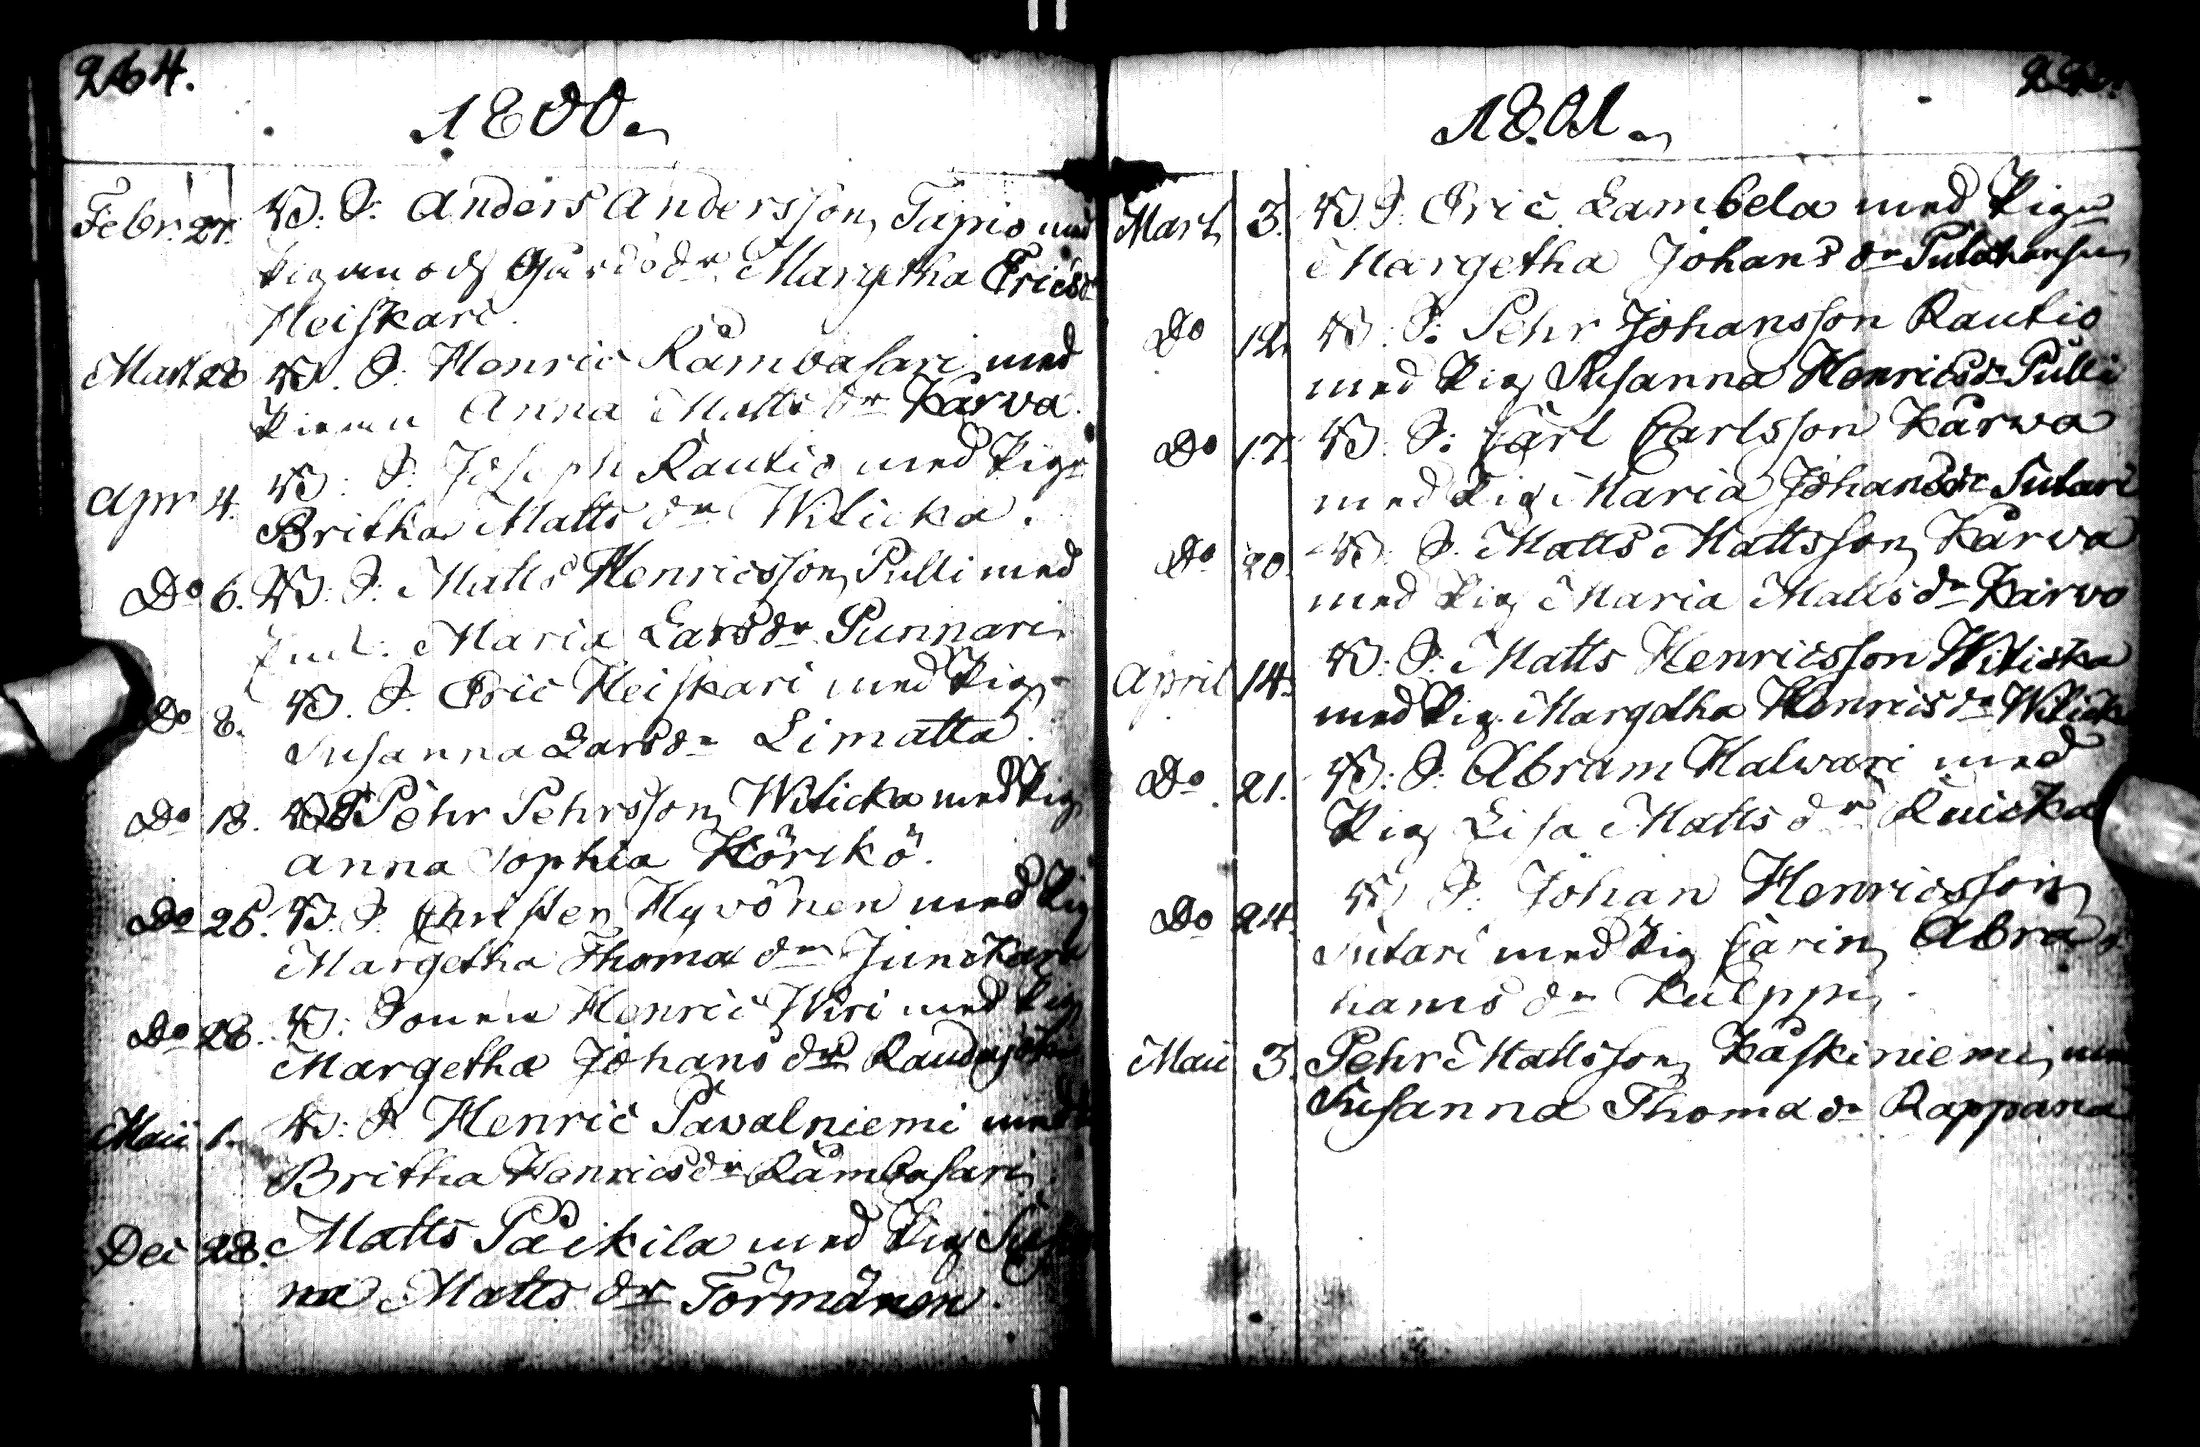 264.
1800.
Febr. 27. W. S. Anders Andersson Tapio med
Pigan och Gårdsdr. Margetha Ericsdr
Heiskari.
Mart 28 W. S. Henric Kämbäsari med
Pigan Anna Mattsdr Karva.
Apr 4. W. S. Joseph Rautio med Pig.
Britha Matts dr Witicka.
Do 6. W. S. Matts Henricsson Pulli med
Maria Larsdr Punnari
Do 8. W. S. Eric Heiskari med Pig.
Susanna Larsdr Limatta.
Do 18. W S Pehr Pehrsson Witicka med Pig
Anna Sophia Hörckö.
Do 25. W. S. Christen Hyvönen med Pig
Margetha Thomæ dr Junckari
Do 28. W. Sonen Henric Wiri med Pig
Margetha Johans dr
Maii 1. W. S. Henric Pawalniemi med
Britha Henricsdr Kämbäsari
Dec 28. Matts Päikilä med Pig Susan
na Matts dr Törmänen.
1801.
Mart 3. W. S. Eric Lambela med Piga
Margetha Johans dr
Do 12. W. S. Pehr Johansson Rautio
med Pig Susanna Henricsdr Pulli
Do 17. W. S. Carl Carlsson Karva
med Pig Maria Johansdr Sutari
Do 20. W. S. Matts Mattsson Karva
med Pig Maria Matts dr Karvo
April 14. W. S. Matts Henricsson Witicka
med Pig. Margetha Henricsdr Witick
Do 21. W. S. Abram Halwari med
Pig Lisa Matts dr Kuicka
Do 24. W S. Johan Henricsson
Sutari med Pig Carin Abra
hams dr Kulppi.
Maii 3. Pehr Mattsson Kaskiniemi med
Susanna Thomæ dr Rappana